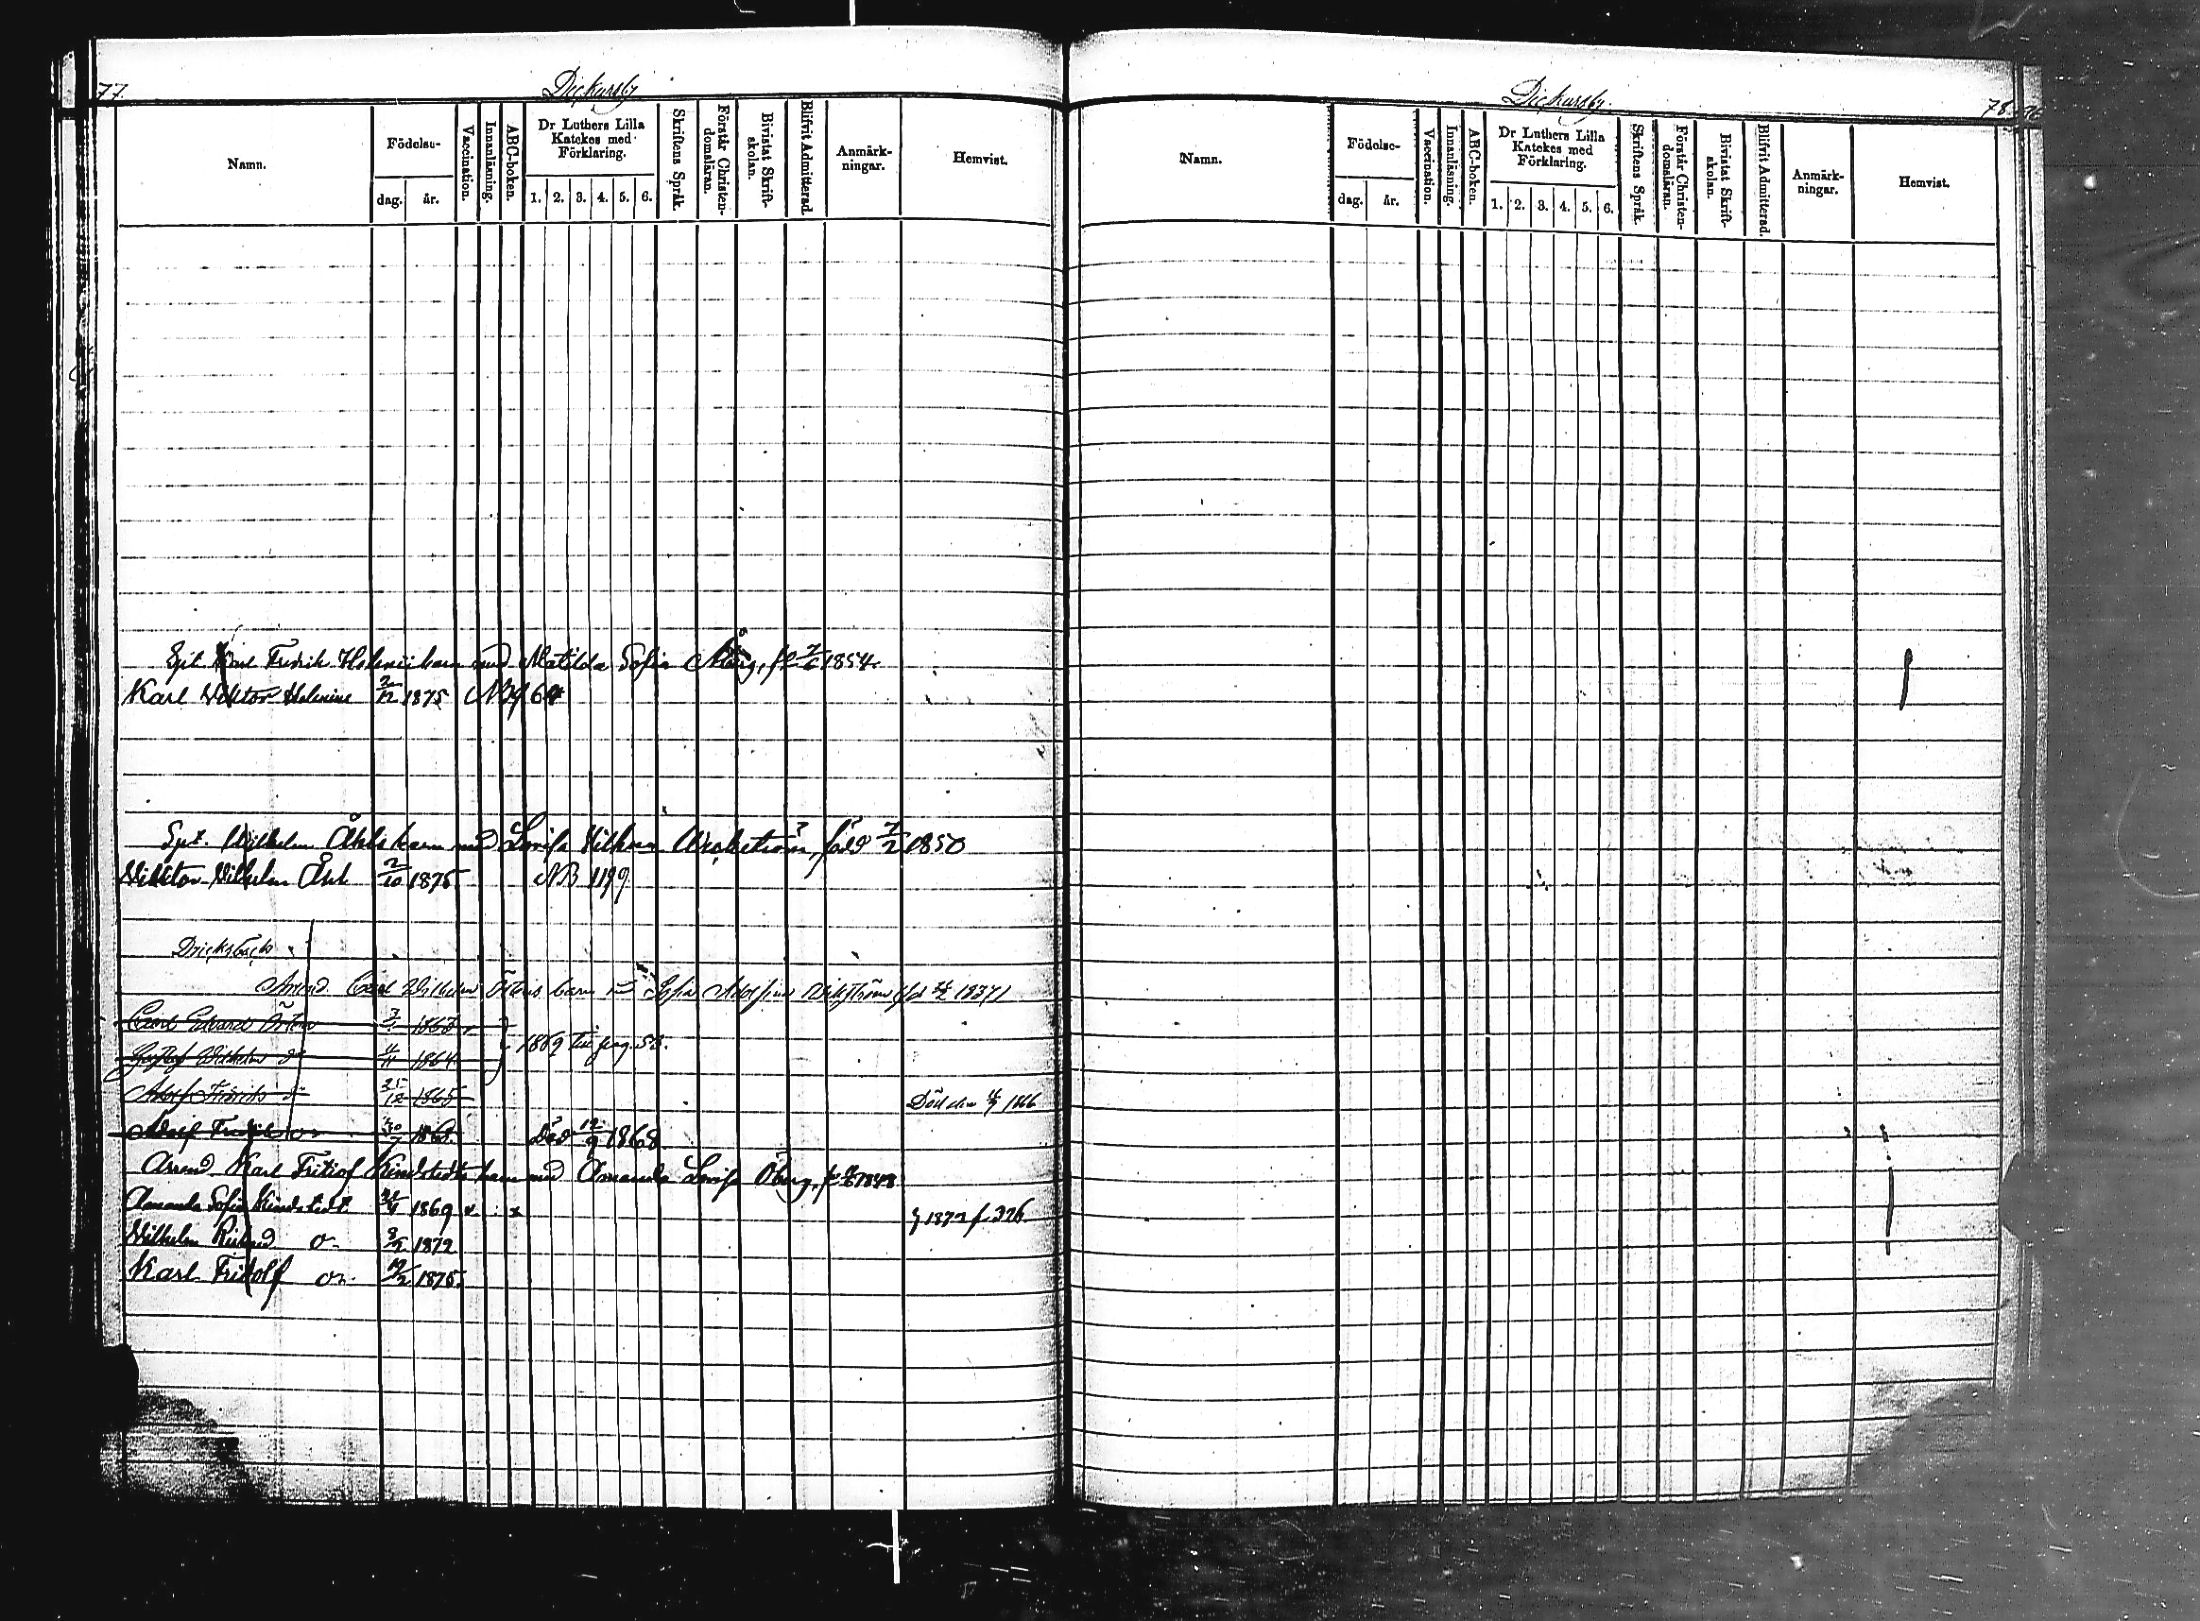 77.
Dickursby
Namn.
Födelse-
dag. år.
Vaccination.
Innanläsning.
ABC-boken.
Dr Luthers Lilla
Katekes med
Förklaring.
1. 2. 3. 4. 5. 6.
Skriftens Språk.
Förstår Christen-
domsläran.
Bivistat Skrift-
skolan.
Blifvit Admitterad.
Anmärk-
ningar.
Hemvist.
Karl Fredrik barn med Matilda Sofia 1854
Karl Viktor 2/12 1875 64
Wilhelm Åhls barn med Lovisa född 7/2 1850
Viktor Vilhelm Åhl 2/10 1875 NB 1199
Dricksbäck
Arend. Carl Wilhelm barn Sofia 1837
Carl Edvard 1863
Gustaf Wilhelm dn 4/11 1864 1869 till pag.
Adolf Fredrik dn 25/12 1865 Död den 1866
Adolf Fredrik dn 30/7 1868 Död 12/9 1868
Arrend. Karl Fritiof Kindstedts barn med Amanda Lovisa Öberg, 1848
Amanda Sofia Kindstedt 1869 x x 1872 f. 326.
Wilhelm Richard dn 1872
Karl Fridolf dn 1875
Dickursby
78
Namn.
Födelse-
dag. år.
Vaccination.
Innanläsning.
ABC-boken.
Dr Luthers Lilla
Katekes med
Förklaring.
1. 2. 3. 4. 5. 6.
Skriftens Språk.
Förstår Christen-
domsläran.
Bivistat Skrift-
skolan.
Blifvit Admitterad.
Anmärk-
ningar.
Hemvist.